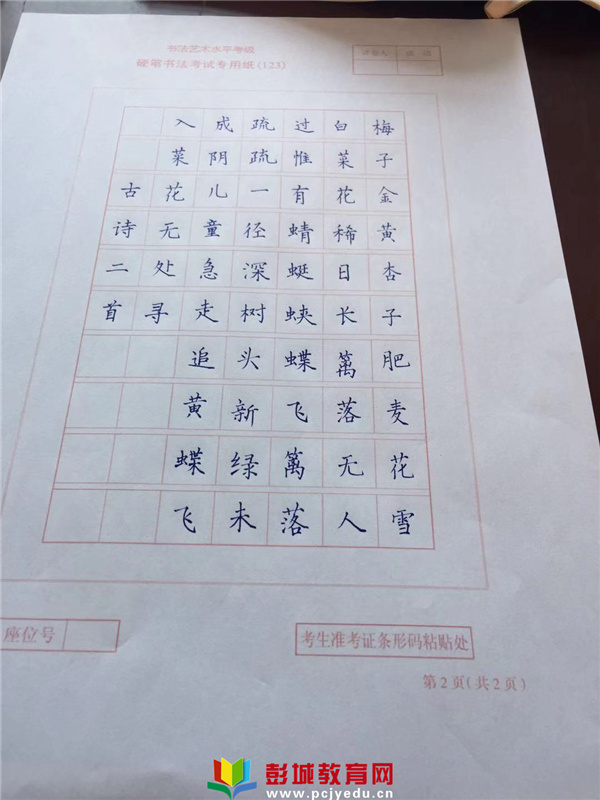 书法艺术水平考级
硬笔书法考试专用纸(123)
梅子金黄杏子肥麦花雪
白菜花稀日长篱落无人
过惟有蜻蜓蛱蝶飞篱落
疏疏一径深树头新绿未
成阴儿童急走追黄蝶飞
入菜花无处寻
古诗二首
座位号
考生准考证条形码粘贴处
第2页(共2页)
彭城教育网
www.pcjyedu.cn